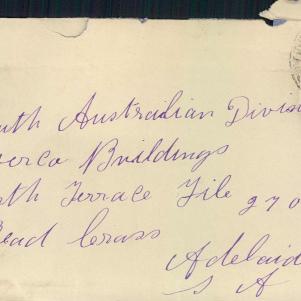 uth Australian Divisi
erco Buildings
th Terrace File 270
Read Cross
Adelaid
S A